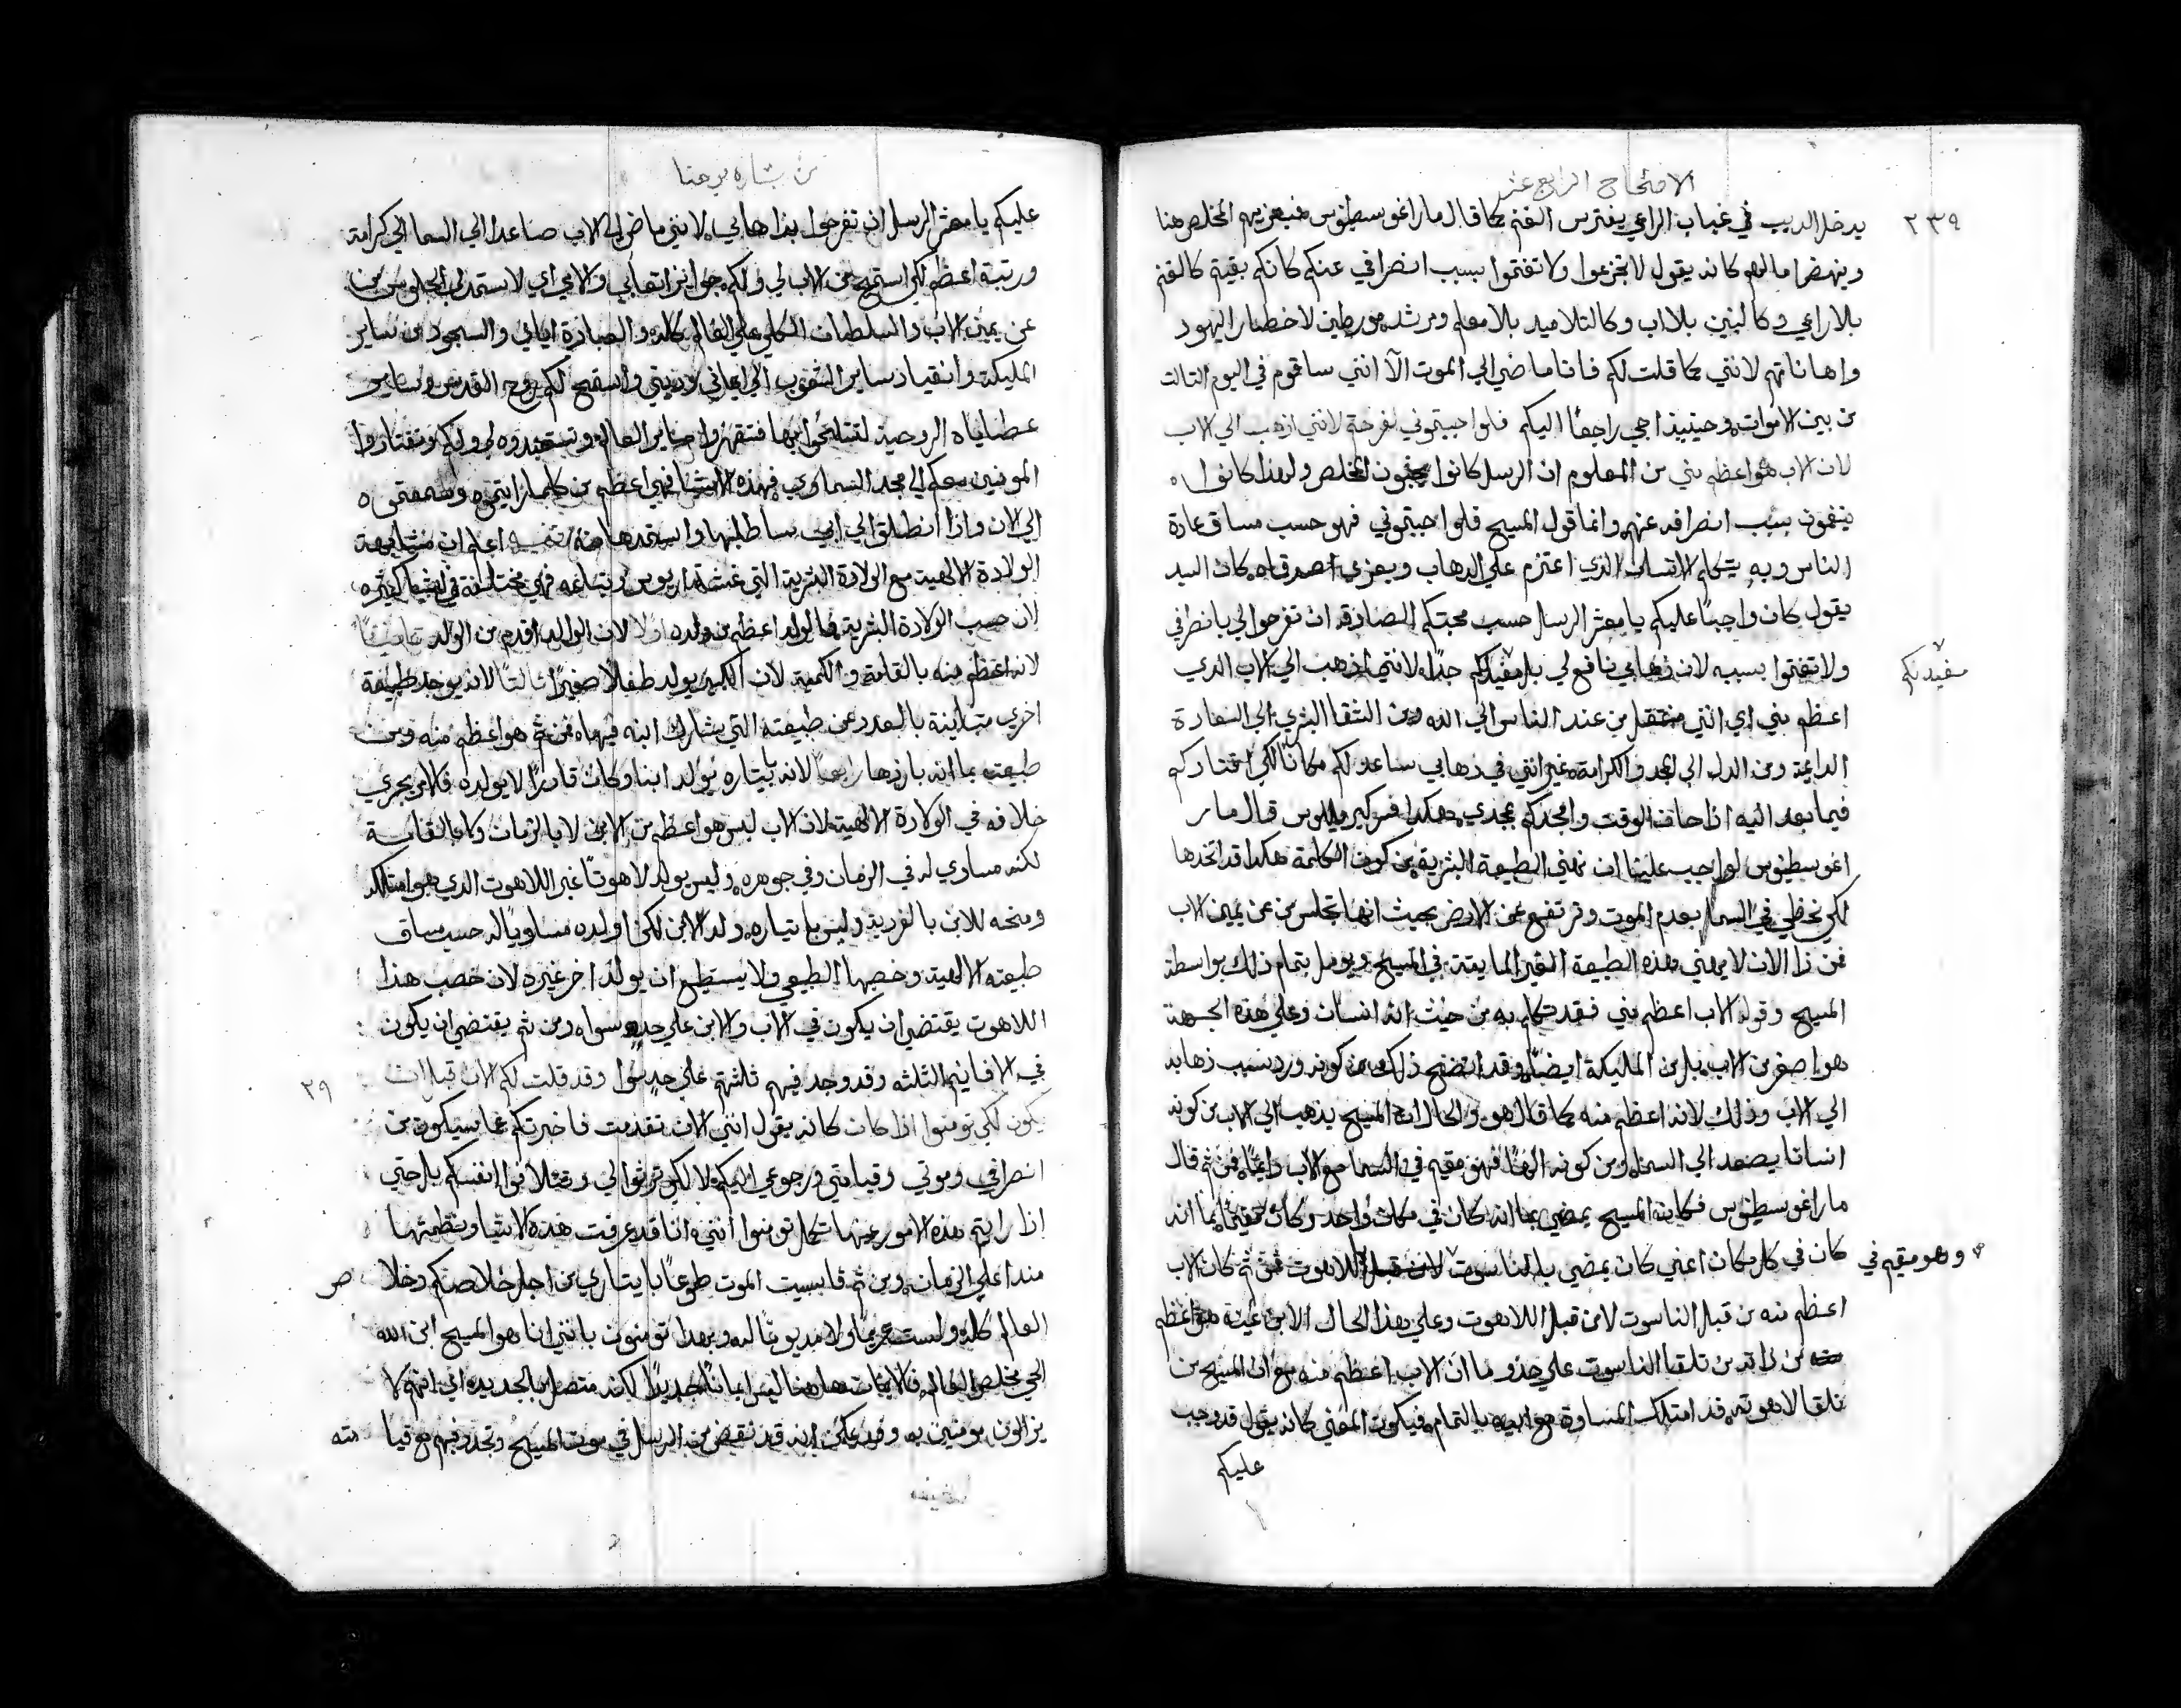 الاصحاح الرابع عشر
٢٣٩
يدخل الديب في غياب الراعي يفترس الغنم كما قال مار اغوسطينوس فيعزيهم المخلص هنا
وينهض امالهم كانه يقول لا تجزعوا ولا تغتموا بسبب انصرافي عنكم كانكم بقيتم كالغنم
بلا راعي وكالبنين بلا اب وكالتلاميد بلا معلم ومرشد مورطين لاخطار اليهود
واهاناتهم لانني كما قلت لكم فانا ماضي الي الموت الا انني ساقوم في اليوم التالت
من بين الاموات وحينيذ اجي راجعًا اليكم فلو احببتموني لفرحتم لانني اذهب الي الاب
لان الاب هو اعظم مني من المعلوم ان الرسل كانوا يحبون المخلص ولهذا كانوا
يغمون بسبب انصرافه عنهم وانما قول المسيح فلو احببتموني فهو حسب مساق عادة
الناس وبه يتكلم الانسان الذي اعتزم علي الدهاب ويعزي اصدقاه كان السيد
يقول كان واجبًا عليكم يا معشر الرسل حسب محبتكم الصادقة ان تفرحوا لي بانصرافي
ولا تغتموا بسببه لان ذهابي نافع لي بل مفيد لكم جدًا لانني اذهب الي الاب الدي
مفيد لكم
اعظم مني اي انني منتقل من عند الناس الي الله ومن الشقا البشري الي السعادة
الدايمة ومن الدل الي المجد والكرامة غير انني في ذهابي ساعد لكم مكانًا لكي اقتادكم
فيما بعد اليه اذا حان الوقت وامجدكم بمجدي هكذا فسر كيرللوس قال مار
اغوسطينوس لواجب علينا ان نهني الطبيعة البشرية من كون الكلمة هكدا قد اتخدها
لكي تحظي في السما بعدم الموت وترتفع عن الارض بحيث انها تجلس من عن يمين الاب
فمن ذا الان لا يهني هذه الطبيعة الغير المايتة في المسيح ويومل بتمام ذلك بواسطة
المسيح وقوله الاب اعظم مني فقد تكلم به من حيث انه انسان وعلي هذه الجهة
هو اصغر من الاب بل من المليكة ايضًا وقد اتضح ذلك من كونه ورد بسبب ذهابه
الي الاب وذلك لانه اعظم منه كما قال هو والحال ان المسيح يذهب الي الاب من كونه
انسانا يصعد الي السما ومن كونه الهًا فهو مقيم في السما مع الاب دايمًا فمن ثم قال
مار اغوسطينوس فكان المسيح يمضي بما انه كان في مكان واحد وكان مقيمًا بما انه
كان في كل مكان اعني كان يمضي بالناسوت اللاهوت فمن ثم كان الاب
وهو مقيم في
اعظم منه من قبل الناسوت لا من قبل اللاهوت وعلي هذا الحال الابن عينه هو اعظم
من ذاته من تلقا الناسوت علي حذو ما ان الاب اعظم منه مع ان المسيح من
تلقا لاهوته قد امتلك المساوة مع ابيه بالتمام فيكون المعني كانه يقول قد وجب
عليكم
من بشاره يوحنا
عليكم يا معشر الرسل ان تفرحوا بذهابي لانني ماض الي الاب صاعدا الي السما الي كرامة
ورتبة اعظم لكي استميح من الاب لي ولكم جوايز اتعابي والامي اي لاستمد لي الجلوس من
عن يمين الاب والسلطان الكلي علي العالم كله والعبادة اياي والسجود من ساير
المليكة وانقياد ساير الشعوب الي ايماني وديني واستميح لكم روح القدس وساير
عطاياه الروحية لتتسلحوا بها فتقهروا ساير العالم وتستعبدوه لي ولكم وتقتادوا
المومنين معكم الي مجد السماوي فهذه الاشيا فهي اعظم من كلما رايتموه وسمعتموه
الي الان واذا انطلق الي ابي ساطلبها واستمدها منه تنبيه اعلم ان مشابهة
الولادة الالهية مع الولادة البشرية التي غشت اريوس وتباعه فهي مختلفة في اشيا كثيره
لان حسب الولادة البشرية فالوالد اعظم من ولده اولا لان الوالد اقدم من الولد ثانيًا
لانه اعظم منه بالقامة والكمية لان الكبير يولد طفلا صغيرًا ثالتًا لانه يوجد طبيعة
اخري متباينة بالعدد عن طبيعته التي يشارك ابنه فيها فمن ثم هو اعظم منه ومن
طبيعته بما انه بارزها رابعًا لانه باختياره يولد ابنا وكان قادرًا لا يولده فالامر يجري
خلافه في الولادة الالهية لان الاب ليس هو اعظم من الابن لا بالزمان ولا بالقامة
لكنه مساوي له في الزمان وفي جوهره وليس يولد لاهوتًا غير اللاهوت الدي هو امتلكه
ومنحه للابن بالفردية وليس باختياره ولد الابن لكن اولده مساويًا له حسب مساق
طبيعته الالهية وخصبها الطبيعي ولا يستطيع ان يولد اخر غيره لان خصب هذا
اللاهوت يقتضي ان يكون في الاب والابن علي حد سوا ومن ثم يقتضي ان يكون
في الاقانيم الثلثه وقد وجد فيهم ثلثتهم علي حد سوا وقد قلت لكم الان قبل ان
٢٩
يكون لكي تومنوا اذا كان كانه يقول انني الان تقدمت فاخبرتكم عما سيكون من
انصرافي وموتي وقيامتي ورجوعي اليكم لا لكي ترثوا لي وتتلافوا انفسكم بل حتي
اذا رايتم هذه الامور عينها تكمل تومنوا انني انا قد عرفت هذه الاشيا ونظمتها
مندا علي الزمان ومن ثم قاسيت الموت طوعًا باختياري من اجل خلاصكم وخلاص
العالم كله ولست غريمًا ولا مديونًا له وبهدا تومنون بانني انا هو المسيح ابن الله
الحي مخلص العالم فالايمان هاهنا ليس ايمانًا جديدًا لكنه متصل بالجديد اي انهم لا
يزالون يومنين به وقد يمكن انه قد نقص من الرسل في موت المسيح وتجدد فيهم مع قيامته